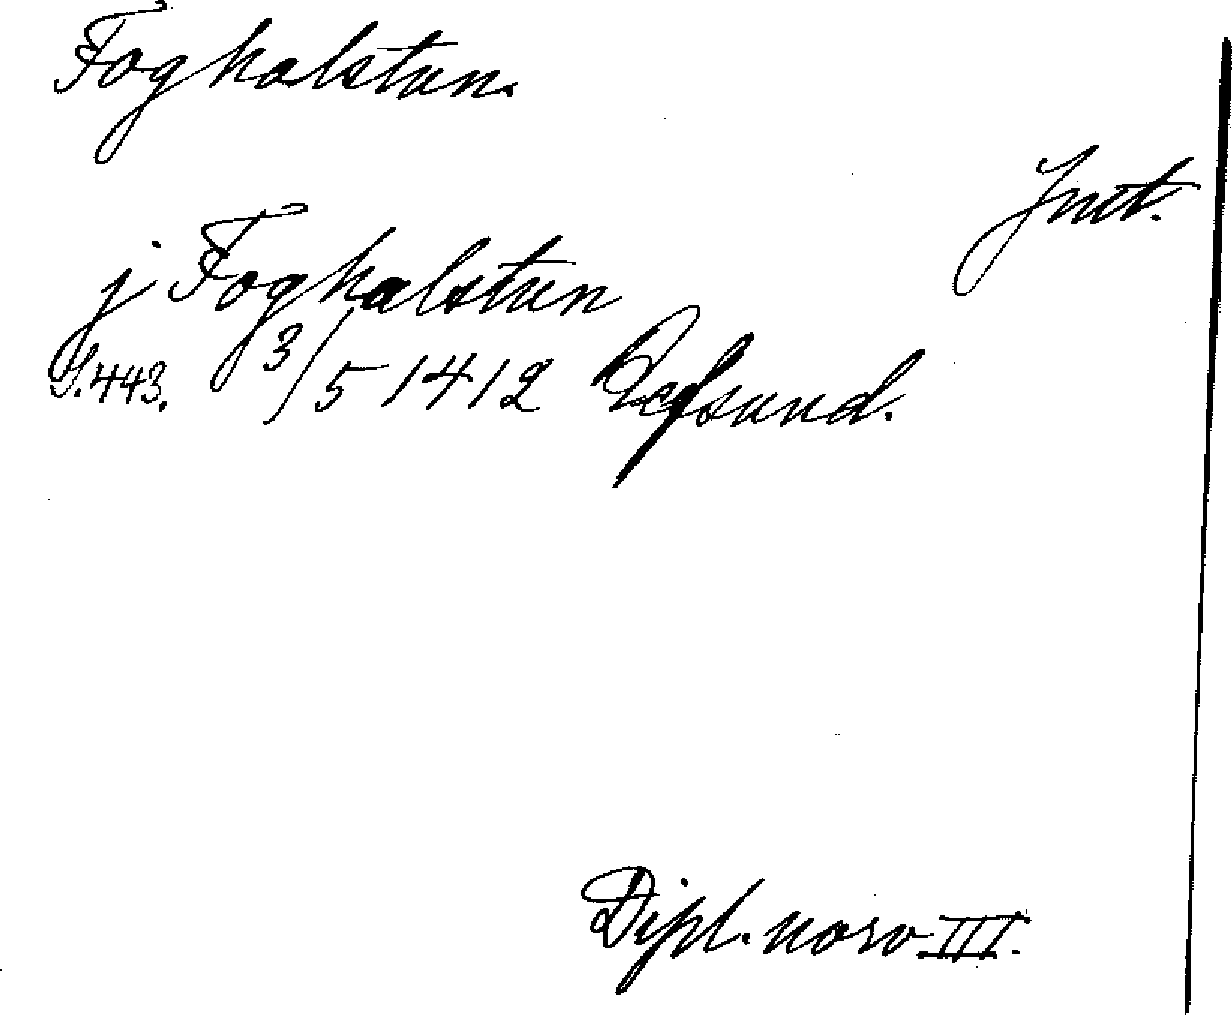 Foghalstun.
Jmt.
j Foghalstun
S. 443. 3/5 1412 Refsund.
Dipl. norv III.